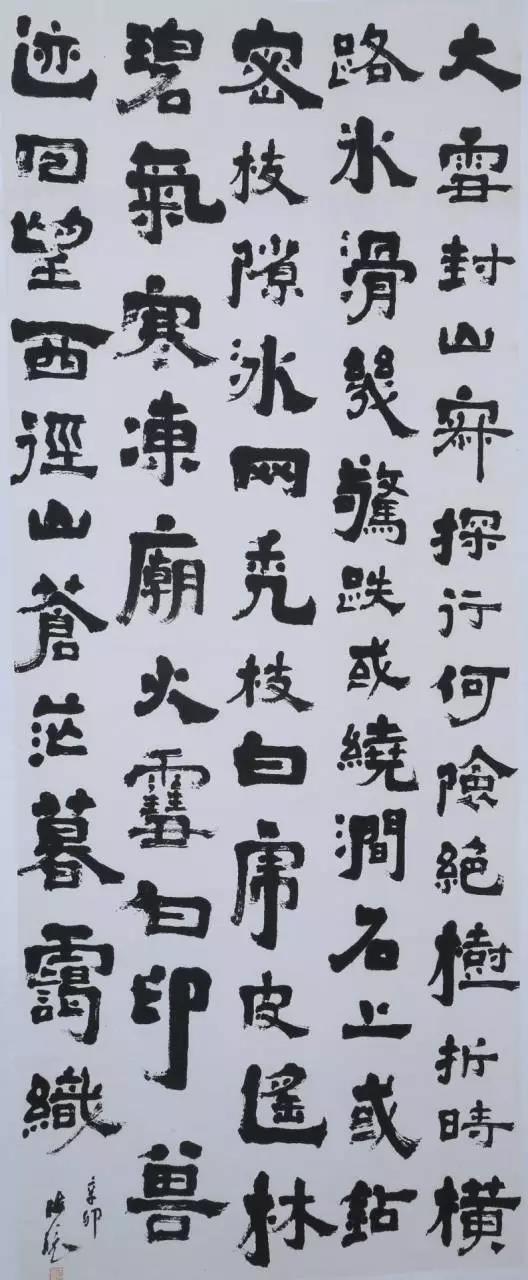 大雪封山寂探行何險絕樹折時橫
路冰滑幾驚跌或繞澗石上或鉆
密枝隙冰网禿枝白虎皮遙林
碧氣寒凍廟火雪白印兽
迹回望西徑山蒼茫暮靄織
辛卯